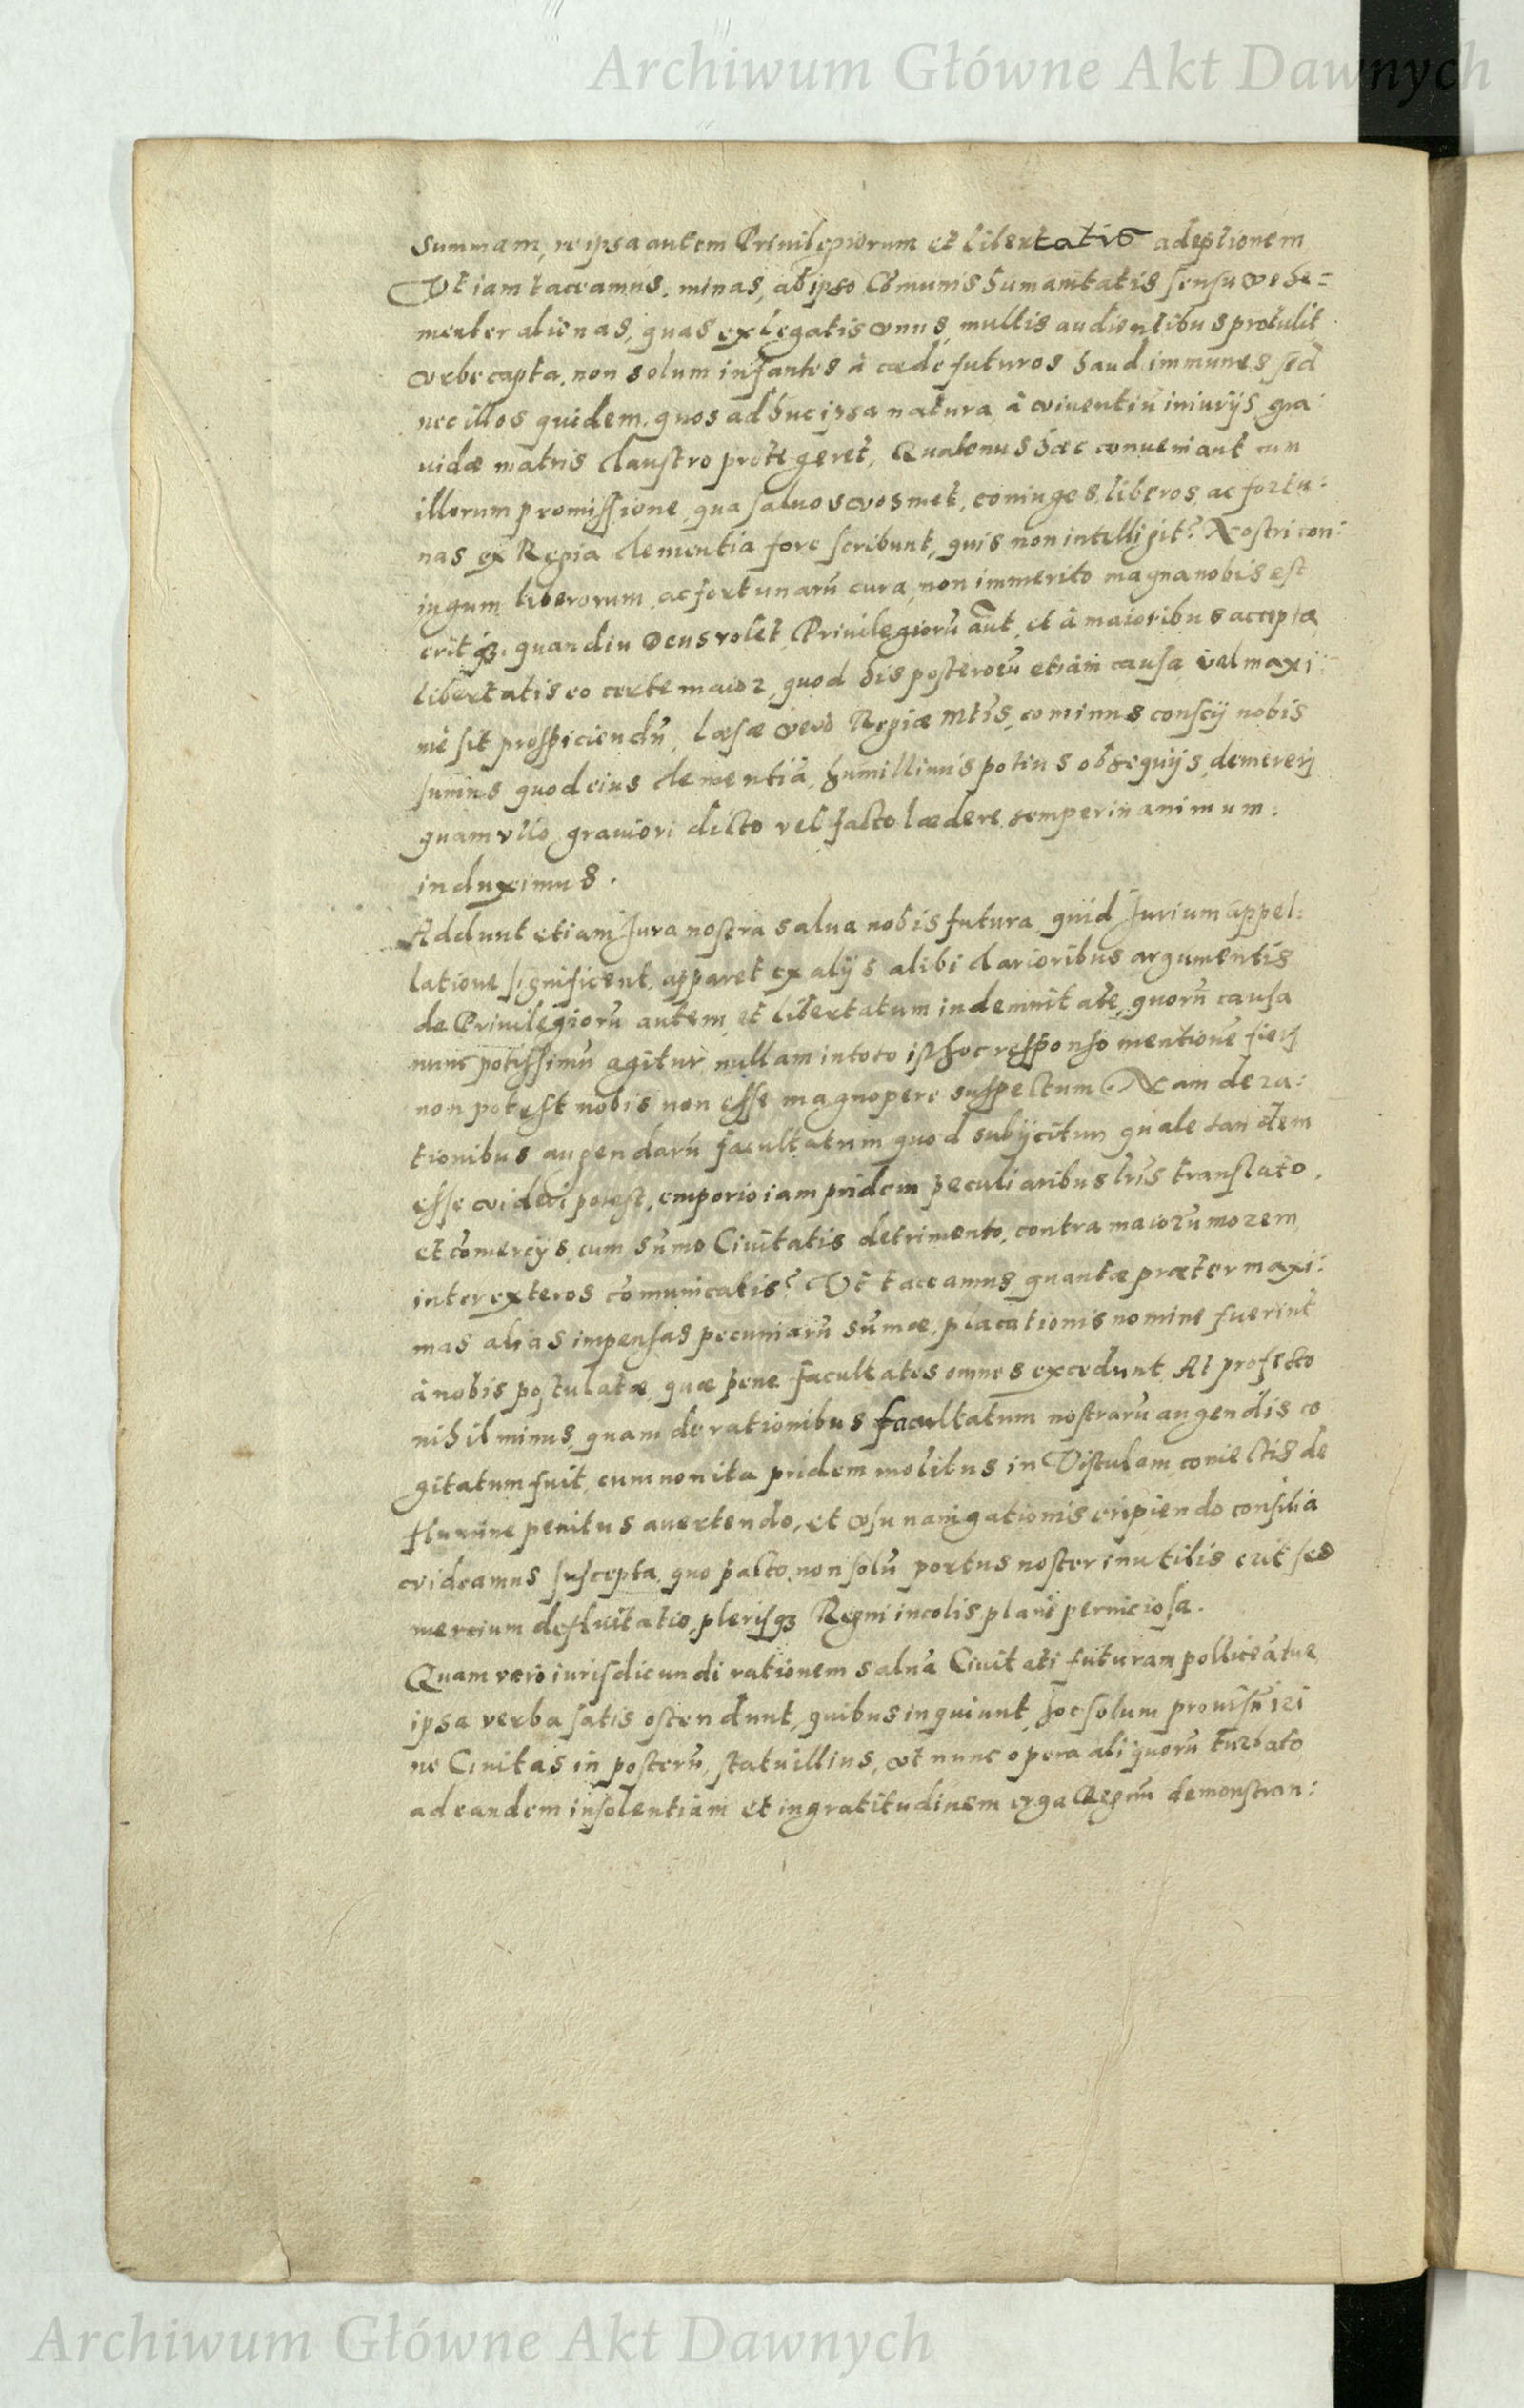 Archiwum Główne Akt Dawnych
summam, re ipsa autem Privilegiorum et libertatis adeptionem
Ut iam taceamus, minas, ab ipso Cōmunis humanitatis sensu vehe=
menter alienas, quas ex legatis unus, multis audientibus protulit
urbe capta, non solum infantes à cæde futuros haud immunes sed
nec illos quidem, quos adhuc ipsa natura, à viventiū iniurijs gra
uidæ matris claustro protegeret, Quatenus hæc conveniant cum
illorum promissione, qua salvos vosmet, coniuges, liberos, ac fortu:
nas ex Regia clementia fore scribunt, quis non intelligit? Nostri con:
iugum liberorum, ac fortunarū cura, non immerito magna nobis est
eritq3, quandiu Deus volet, Privilegiorū aut̄, et à maioribus acceptæ
libertatis eo certe maior, quod his posterorū etiam causa, vel maxi:
mè sit prospiciendū, Læsæ verò Regiæ Mtis, eo minus, conscij nobis
sumus quod eius clementiā, humillimis potius obsequijs, demererj
quam ullo, graviori dicto vel facto lædere semper in animum:
induximus.
Addunt etiam Jura nostra salva nobis futura, quid Jurium appel:
latione significent, apparet ex alijs alibi clarioribus argumentis
de Privilegiorū autem, et libertatum indemnitate, quorū causa
nunc potissimū agitur, nullam in toto isthoc responso mentionē fierj
non potest nobis non esse magnopere suspectum. Nam de ra:
tionibus augendarū facultatum quod subijcitur, quale tandem
esse videri potest, emporio iam pridem peculiaribus lr̄is translato,
et cōmercijs, cum sūmo Civitatis detrimento, contra maiorū morem,
inter exteros cōmunicatis? Ut taceamus, quantæ præter maxi:
mas alias impensas pecuniarū sūmæ, placationis nomine fuerint
à nobis postulatæ, quæ pene facultates omnes excedunt, At profecto
nihil minus, quam de rationibus facultatum nostrarū augendis co
gitatum fuit, cum non ita pridem molibus in Vistulam, coniectis de
flumine penitus avertendo, et usu navigationis eripiendo consilia
videamus suscepta, quo pacto, non solū portus noster inutilis erit sed
mercium defluitatio, plerisq3 Regni incolis, planè perniciosa.
Quam verò iurisdicundi rationem salvā Civitati futuram polliceātur
ipsa verba satis ostendunt, quibus inquiunt, hoc solum provisū iri
ne Civitas in posterū, statu illius, ut nunc opera aliquorū turbato
ad eandem insolentiam et ingratitudinem erga Regnū demonstran:
Archiwum Główne Akt Dawnych